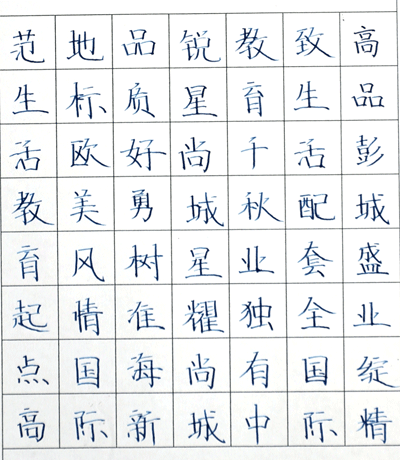 高品彭城盛业绽精
致生活配套全国际
教育千秋业独有中
锐星尚城星耀尚城
品质好勇树淮海新
地标欧美风情国际
范生活教育起点高